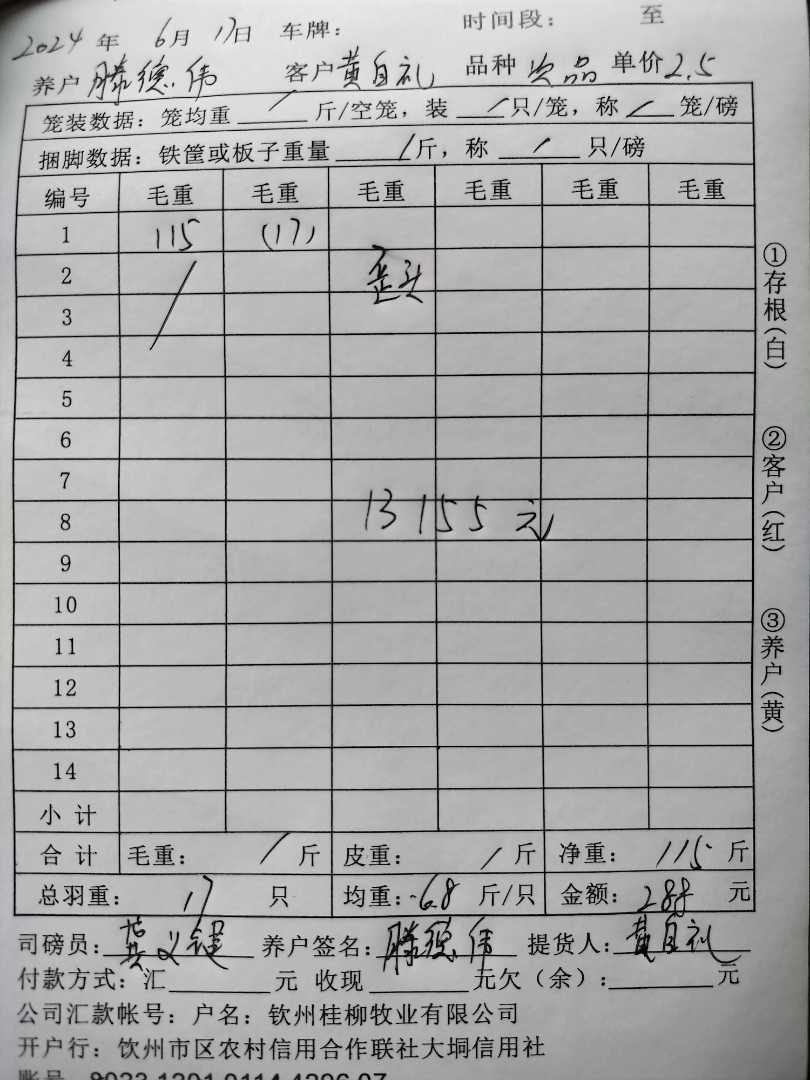 2024 年 6月 17日 车牌： 时间段： 至
养户 滕德伟 客户 黄自礼 品种 次品 单价 2.5
笼装数据：笼均重 / 斤/空笼，装 / 只/笼，称 / 笼/磅
捆脚数据：铁筐或板子重量 / 斤，称 / 只/磅
编号 毛重 毛重 毛重 毛重 毛重 毛重
1 115 (17)
2 歪头
3
4
5
6
7
8 13155元
9
10
11
12
13
14
小计
合计 毛重： / 斤 皮重： / 斤 净重： 115 斤
总羽重： 17 只 均重： 6.8 斤/只 金额： 288 元
司磅员： 义键 养户签名： 滕德伟 提货人： 黄自礼
付款方式：汇 元 收现 元欠（余）： 元
公司汇款帐号：户名：钦州桂柳牧业有限公司
开户行：钦州市区农村信用合作联社大垌信用社
①存根(白)
②客户(红)
③养户(黄)